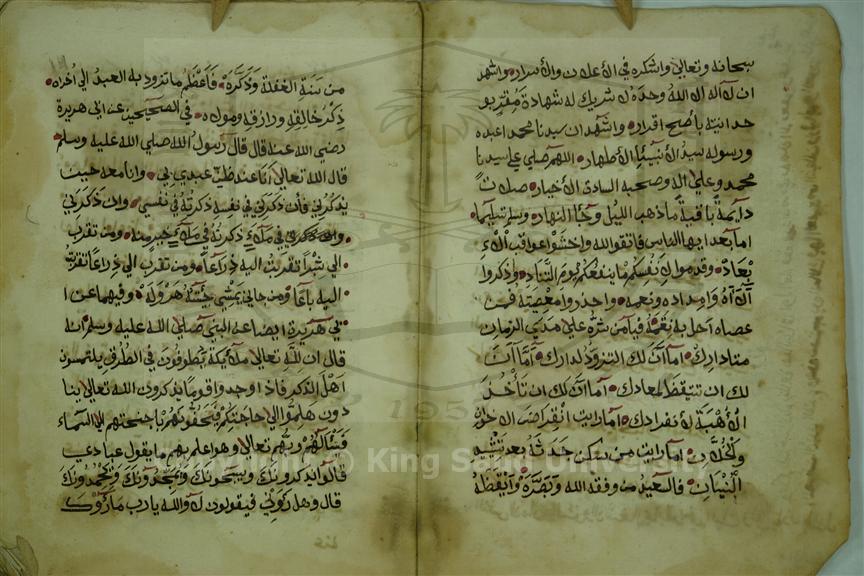 سبحانه وتعالى واشكره في الاعلان والاسرار واشهد
ان لا اله الا الله وحده لا شريك له شهادة مقر بو
حدانيته بافصح اقرار واشهد ان سيدنا محمدا عبده
ورسوله سيد الانبيآ الاطهار اللهم صلي على سيدنا
محمد وعلى اله وصحبه السادة الاخيار صلاتً
دايمةً باقيةً ما ذهب الليل وجآ النهار وسلم تسليما
اما بعد ايها الناس فاتقوالله واخشوا عواقب الا
بعاد وقدموا لانفسكم ما ينفعكم ليوم التناد واذكروا
الآه وامداده ونعمه واحذروا معصيته فمن
عصاه احل به نقمه فيا من على مدى الزمان
متادارك اما آن لك التزود لدارك اما آن
لك ان تتيقظ لمعادك اما آن لك ان تأخذ
الأهبة لانفرادك اما رايت انقراض الاخوان
والخلان اما رايت من سكن جدثه بعد
البنيان فالسعيد من وفقه الله وبصره وأيقظه
من سنة الغفلة وذكره فأعظم ما تزود به العبد الى أخراه
ذكر خالقه ورازقه ومولاه في الصحيحين عن ابى هريرة
رضي الله عنه قال قال رسول الله صلي الله عليه وسلم
قال الله تعالى أنا عند ظن عبدي بي وانا معه حين
يذكرني فأن ذكرني في نفسه ذكرته في نفسي وان ذكرني
في ملاءٍ ذكرته في ملاءٍ خير منه ومن تقرب
الي شبرا تقربت اليه ذراعاً ومن تقرب الي ذراعا تقربت
اليه باعًا ومن جاني يمشي جيته هرولة وفيهما عن ا
بي هريرة ايضا عن النبي صلي الله عليه وسلم انه
قال ان لله تعالى ملآيكة يطوفون في الطرق يلتمسون
اهل الذكر فاذا وجدوا قوما يذكرون الله تعالى ينا
دون هلموا الى حاجتكم فيحفونهم باجنحتهم الى السماء
فيسألهم ربهم تعالى وهو اعلم بهم ما يقول عبادي
قالوا يذكرونك ويسبحونك ويمجدونك ويحمدونك
قال وهل رأوني فيقولون لا والله يا رب ما رأوك
Copyright © King Saud University
195